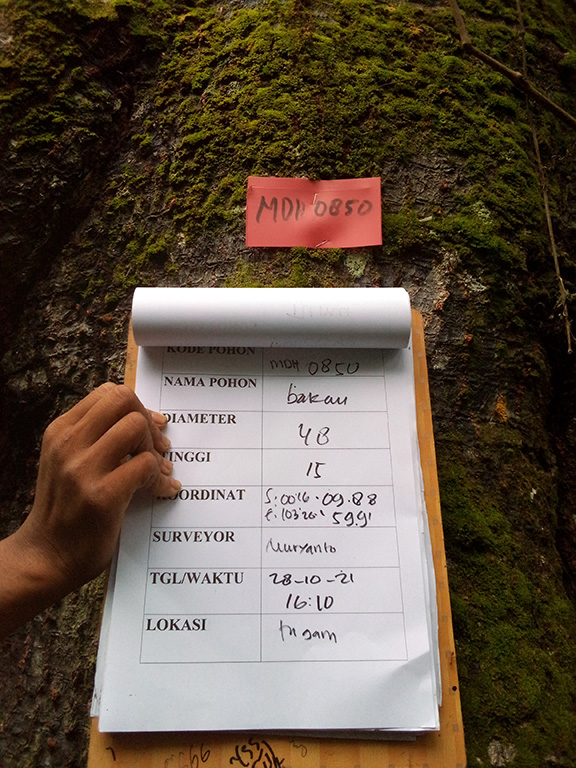 MDH 0850
KODE POHON MDH 0850
NAMA POHON bakau
DIAMETER 48
TINGGI 15
KOORDINAT S: 0016. 09.88
E: 10326' 59.91
SURVEYOR Nuryanto
TGL/WAKTU 28-10-21
16:10
LOKASI